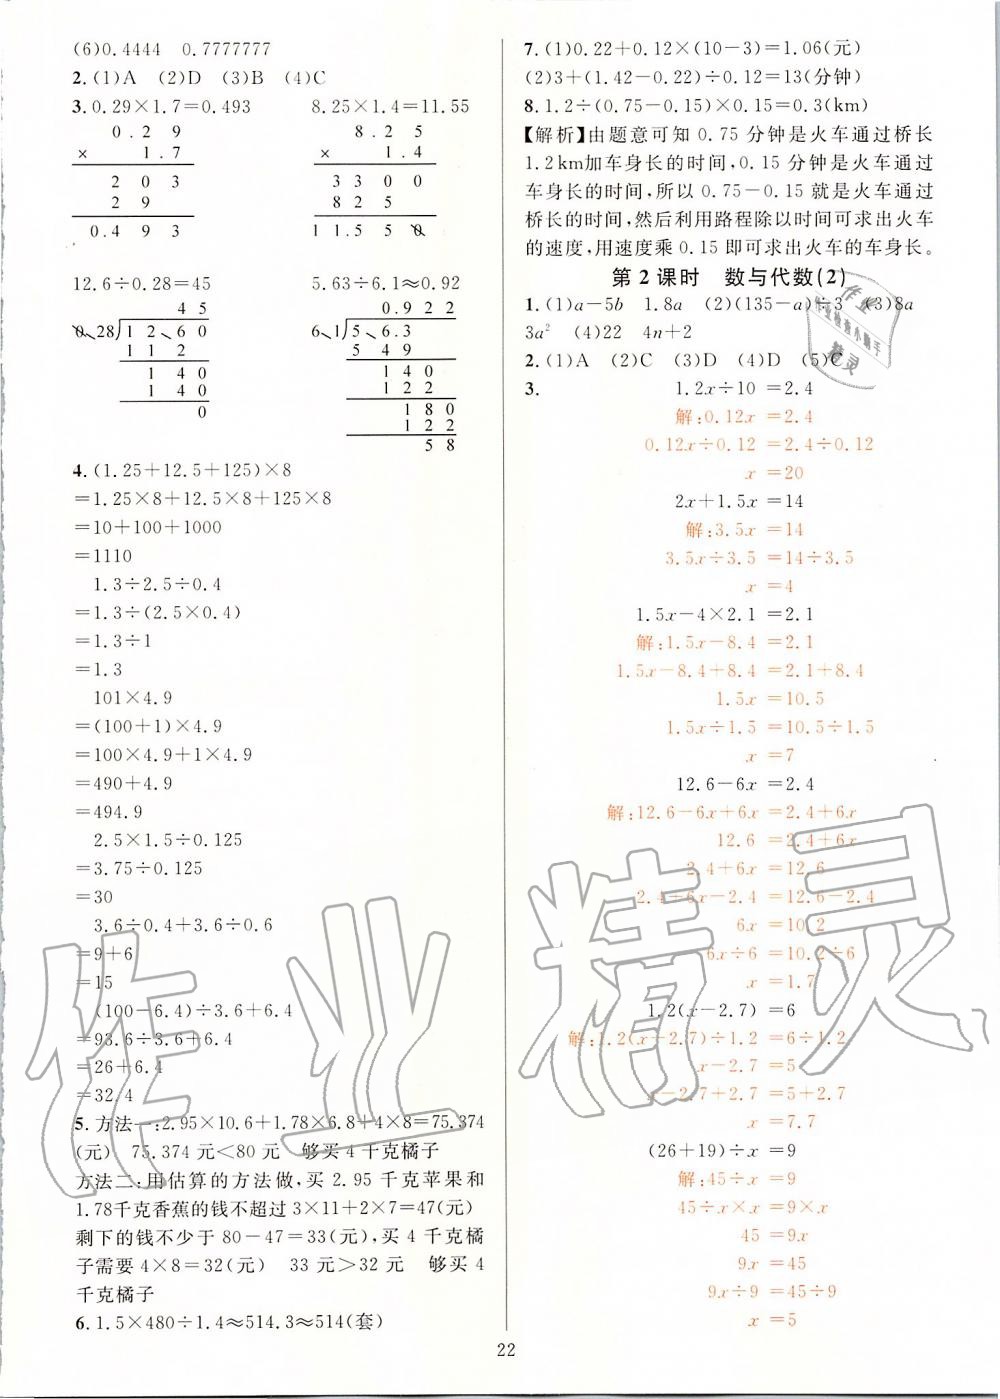 (6)0.4444　0.7777777
2.(1)A　(2)D　(3)B　(4)C
3.0.29×1.7=0.493　8.25×1.4=11.55
0.29　8.25
×　1.7　×　1.4
203　3300
29　825
0.493　11.550
12.6÷0.28=45　5.63÷6.1≈0.92
45　0.922
0.28)12.60　6.1)5.6.3
112　549
140　140
140　122
0　180
122
58
4.(1.25+12.5+125)×8
=1.25×8+12.5×8+125×8
=10+100+1000
=1110
1.3÷2.5÷0.4
=1.3÷(2.5×0.4)
=1.3÷1
=1.3
101×4.9
=(100+1)×4.9
=100×4.9+1×4.9
=490+4.9
=494.9
2.5×1.5÷0.125
=3.75÷0.125
=30
3.6÷0.4+3.6÷0.6
=9+6
=15
(100-6.4)÷3.6+6.4
=93.6÷3.6+6.4
=26+6.4
=32.4
5.方法一:2.95×10.6+1.78×6.8+4×8=75.374
(元)　75.374元<80元　够买4千克橘子
方法二:用估算的方法做,买2.95千克苹果和
1.78千克香蕉的钱不超过3×11+2×7=47(元)
剩下的钱不少于80-47=33(元),买4千克橘
子需要4×8=32(元)　33元>32元　够买4
千克橘子
6.1.5×480÷1.4≈514.3≈514(套)
7.(1)0.22+0.12×(10-3)=1.06(元)
(2)3+(1.42-0.22)÷0.12=13(分钟)
8.1.2÷(0.75-0.15)×0.15=0.3(km)
【解析】由题意可知0.75分钟是火车通过桥长
1.2km加车身长的时间,0.15分钟是火车通过
车身长的时间,所以0.75-0.15就是火车通过
桥长的时间,然后利用路程除以时间可求出火车
的速度,用速度乘0.15即可求出火车的车身长。
第2课时　数与代数(2)
1.(1)a-5b　1.8a　(2)(135-a)÷3　(3)8a
3a²　(4)22　4n+2
2.(1)A　(2)C　(3)D　(4)D　(5)C
3.　1.2x÷10=2.4
解:0.12x=2.4
0.12x÷0.12=2.4÷0.12
x=20
2x+1.5x=14
解:3.5x=14
3.5x÷3.5=14÷3.5
x=4
1.5x-4×2.1=2.1
解:1.5x-8.4=2.1
1.5x-8.4+8.4=2.1+8.4
1.5x=10.5
1.5x÷1.5=10.5÷1.5
x=7
12.6-6x=2.4
解:12.6-6x+6x=2.4+6x
12.6=2.4+6x
2.4+6x=12.6
2.4+6x-2.4=12.6-2.4
6x=10.2
6x÷6=10.2÷6
x=1.7
1.2(x-2.7)=6
解:1.2(x-2.7)÷1.2=6÷1.2
x-2.7=5
x-2.7+2.7=5+2.7
x=7.7
(26+19)÷x=9
解:45÷x=9
45÷x×x=9×x
45=9x
9x=45
9x÷9=45÷9
x=5
22
作业精灵